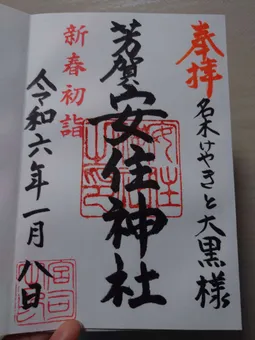 奉拝
名木けやきと大黒様
芳賀安住神社
新春初詣
令和六年一月八日